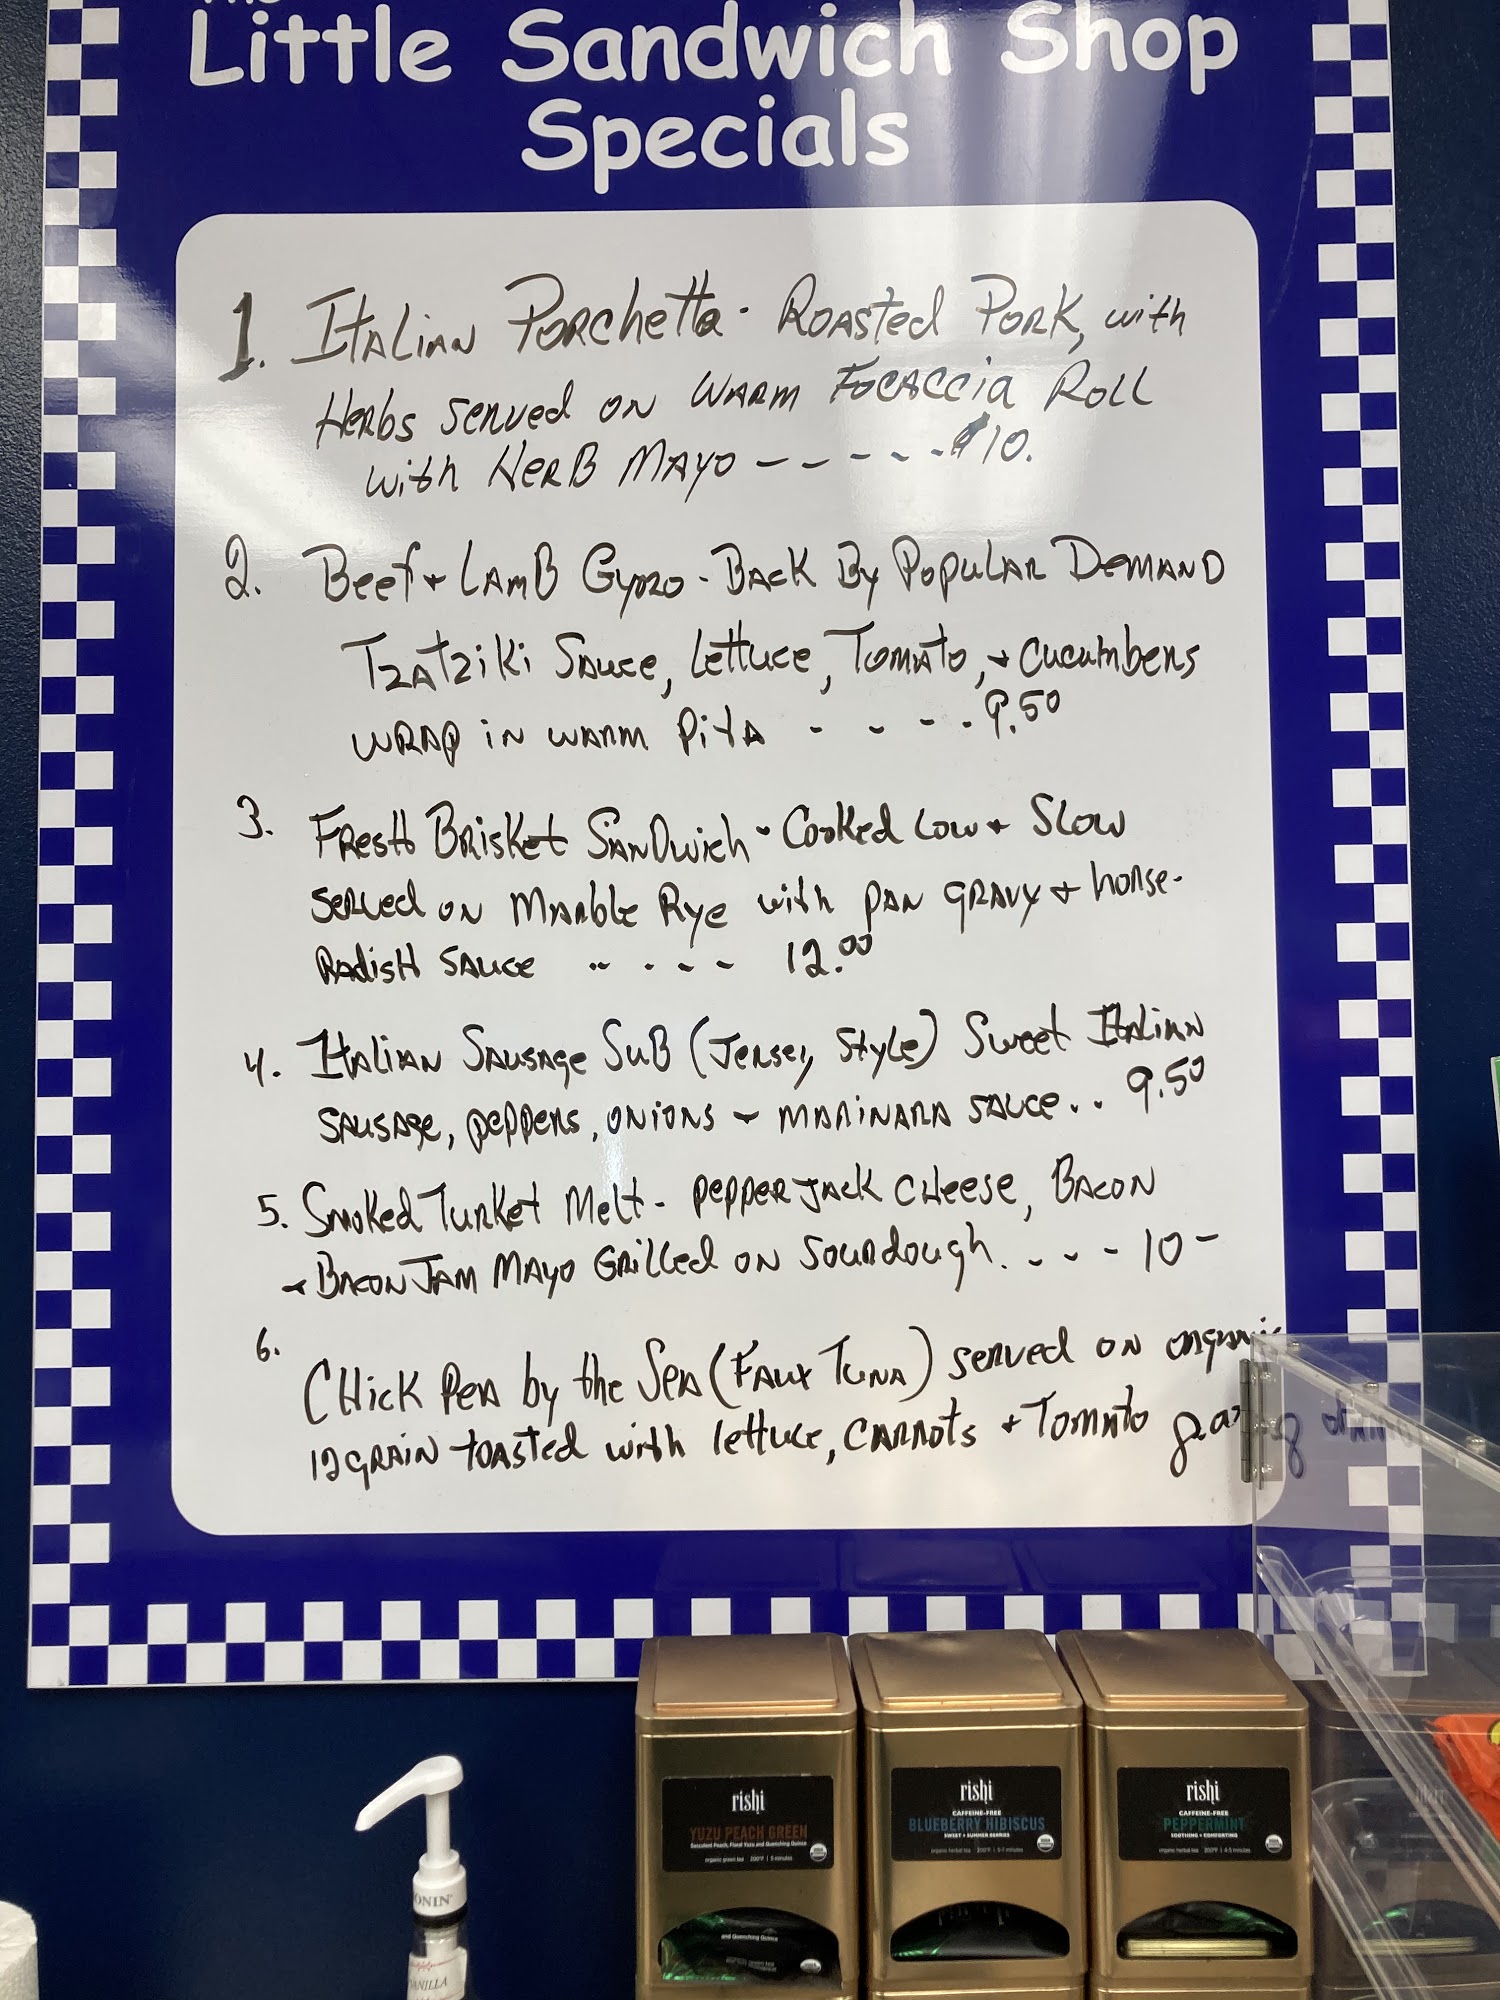 Little Sandwich Shop
Specials
1. Italian Porchetta - Roasted Pork, with
Herbs served on warm Focaccia Roll
with Herb Mayo - - - - - - $10.
2. Beef + Lamb Gyro - Back By Popular Demand
Tzatziki Sauce, Lettuce, Tomato, + cucumbers
wrap in warm Pita - - - - 9.50
3. Fresh Brisket Sandwich - Cooked Low + Slow
served on Marble Rye with pan gravy + horse-
Radish sauce - - - - 12.00
4. Italian Sausage Sub (Jersey Style) Sweet Italian
sausage, peppers, onions + marinara sauce.. 9.50
5. Smoked Turket Melt - pepper jack cheese, Bacon
+ Bacon Jam Mayo Grilled on Sourdough. - - - 10 -
6. Chick Pea by the Sea (Faux Tuna) served on organic
12 grain toasted with lettuce, carrots + Tomato
rishi
YUZU PEACH GREEN
Succulent Peach, Floral Yuzu and Quenching Quince
organic green tea 200°F | 3 minutes
and Quenching Quince
rishi
CAFFEINE-FREE
BLUEBERRY HIBISCUS
SWEET + SUMMER BERRIES
organic herbal tea 200°F | 5-7 minutes
rishi
CAFFEINE-FREE
PEPPERMINT
SOOTHING + COMFORTING
organic herbal tea 202°F | 4-5 minutes
ONIN
VANILLA